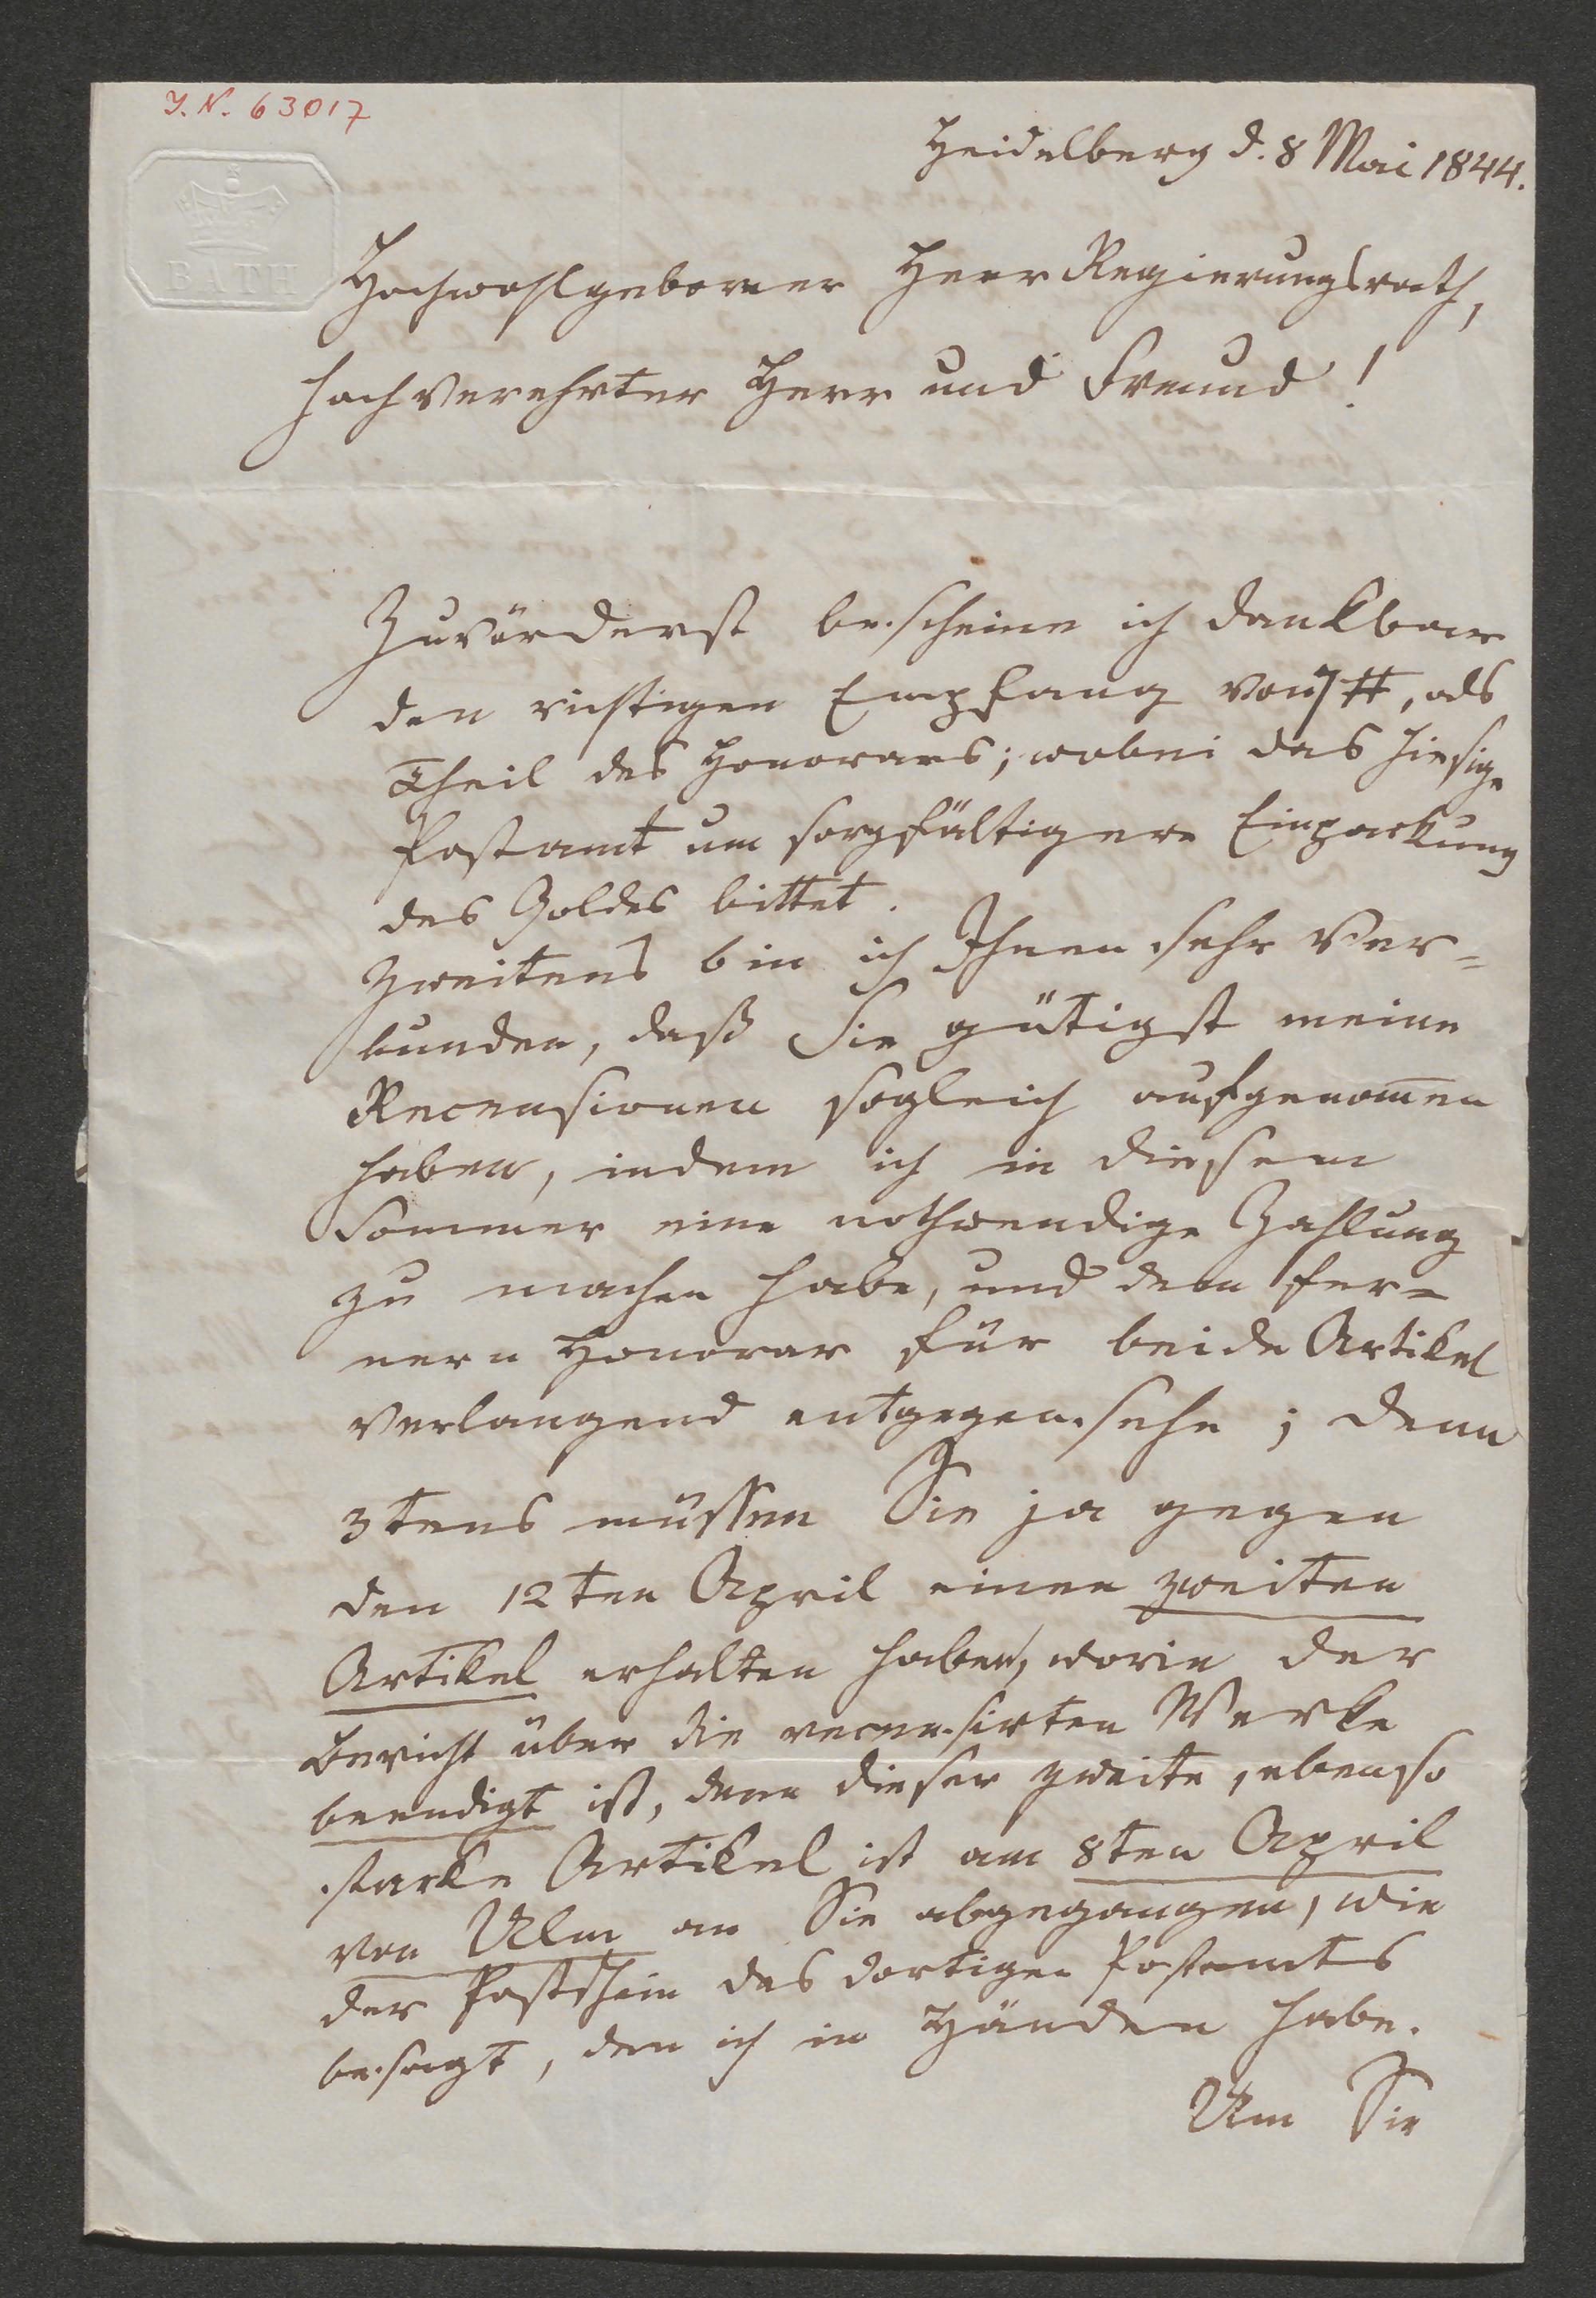 J. N. 63017
BATH
Heidelberg d. 8 Mai 1844.
Hochwohlgeborner Herr Regierungsrath,
hochverehrter Herr und Freund!
Zuvörderst bescheine ich dankbar
den richtigen Empfang von 7 #, als
Theil des Honorars; wobei das hiesige
Postamt um sorgfältigere Einpackung
des Goldes bittet.
Zweitens bin ich Ihnen sehr ver=
bunden, daß Sie gütigst meine
Recensionen sogleich aufgenom̅en
haben, indem ich in diesem
Sommer eine nothwendige Zahlung
zu machen habe, und dem fer=
nern Honorar für beide Artikel
verlangend entgegensehe; denn
3tens müssen Sie ja gegen
den 12ten April einen zweiten
Artikel erhalten haben, worin der
Bericht über die recensirten Werke
beendigt ist, denn dieser zweite, ebenso
starke Artikel ist am 8ten April
von Ulm an Sie abgegangen, wie
der Postschein des dortigen Postamts
besagt, den ich in Händen habe.
Um Sie